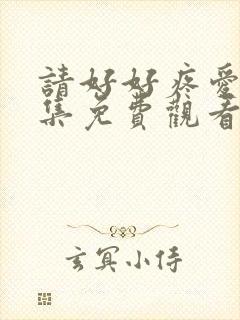 請好好疼愛
集免費觀看
玄冥小侍